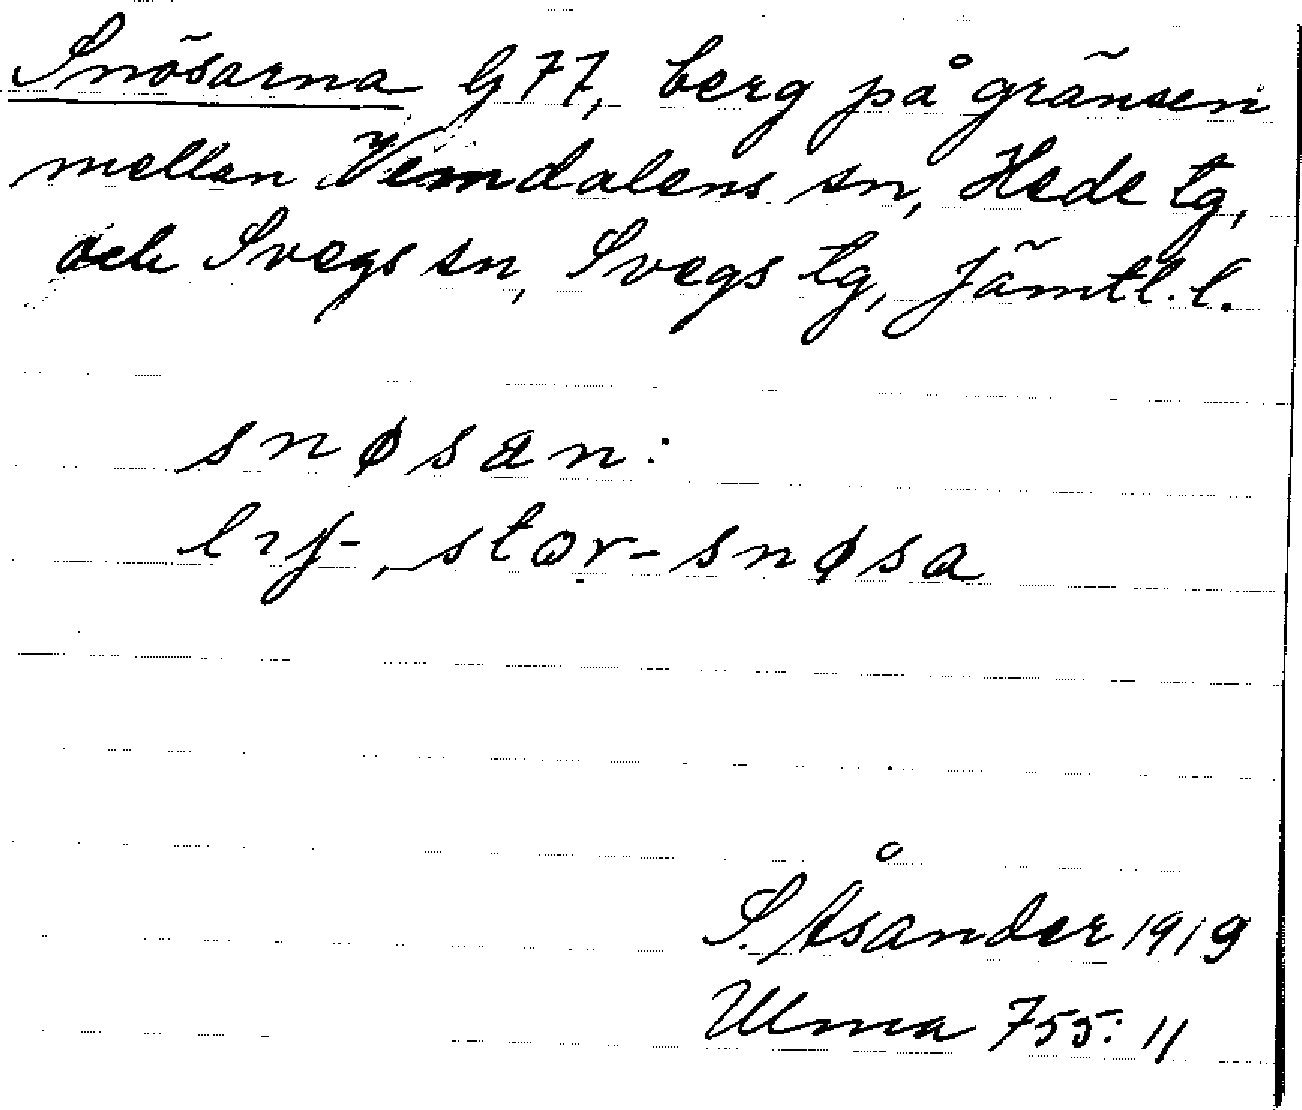 Snösarna G77, berg på gränsen
mellan Vemdalens sn, Hede tg,
och Svegs sn, Svegs tg, Jämtl. l.
snøsan:
stor-snøsa
S. Åsander 1919
Ulma 755:11